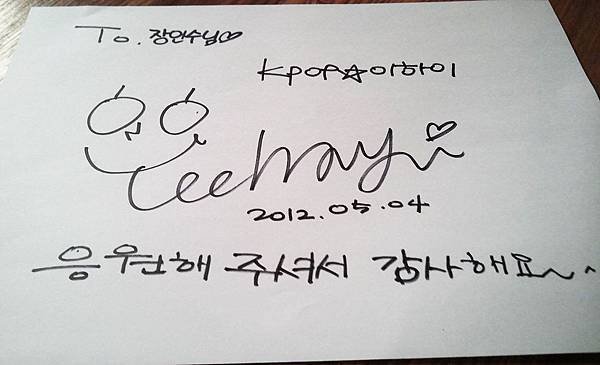 To. 장인수님♡
Kpop☆이하이
Lee hayi♡
2012.05.04
응원해 주셔서 감사해요~^